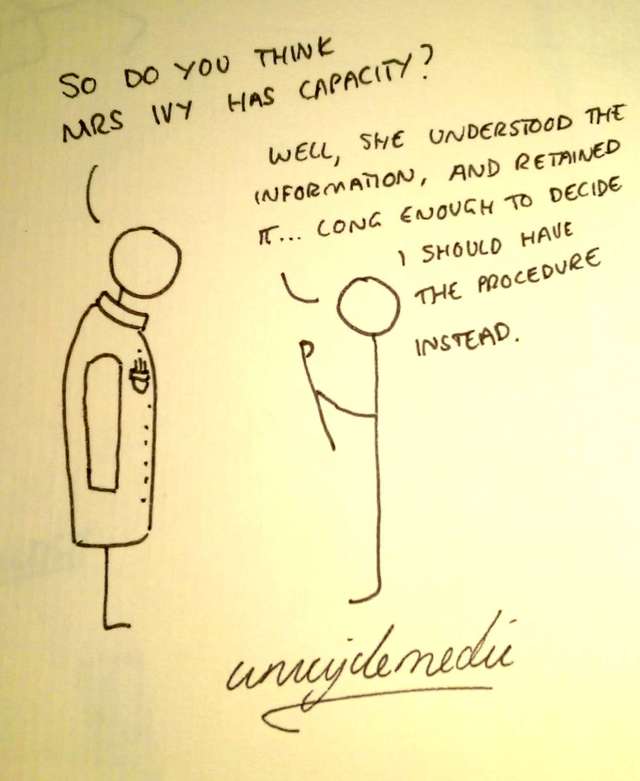 SO DO YOU THINK
MRS IVY HAS CAPACITY?
WELL, SHE UNDERSTOOD THE
INFORMATION, AND RETAINED
IT... LONG ENOUGH TO DECIDE
I SHOULD HAVE
THE PROCEDURE
INSTEAD.
unicyclemedic